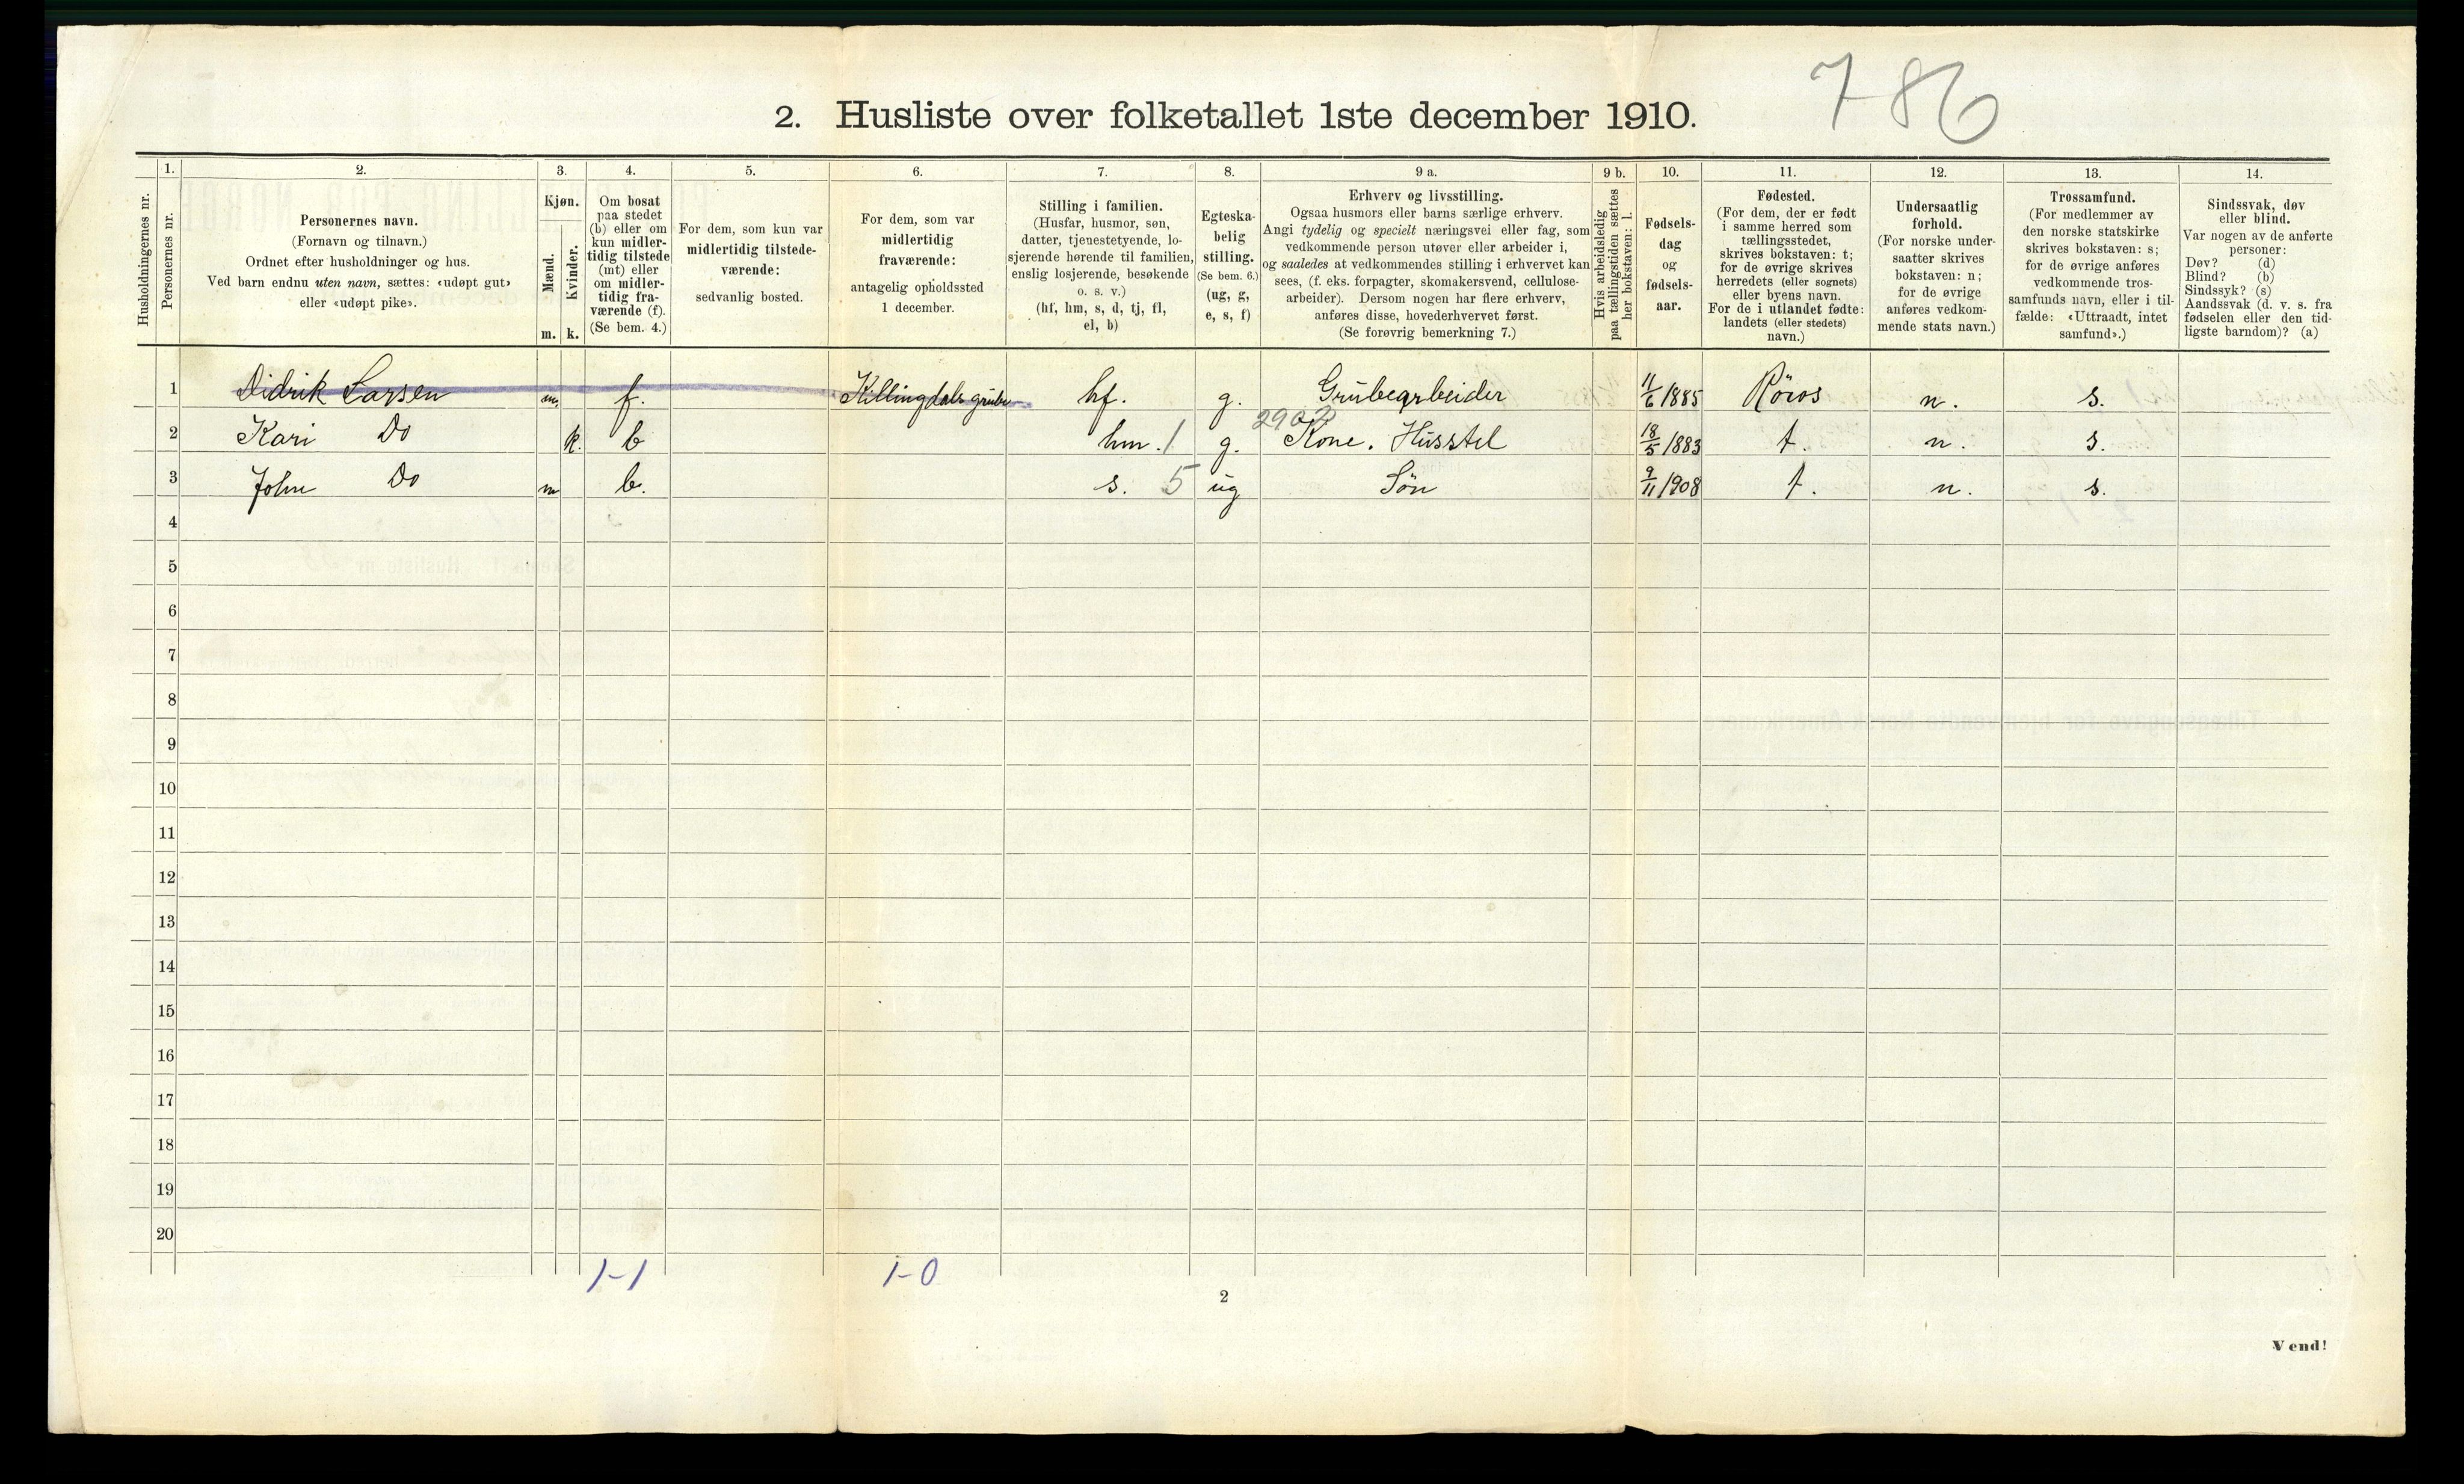 786
2. Husliste over folketallet 1ste december 1910.
Husholdningernes nr.
1.
Personernes nr.
2.
Personernes navn.
(Fornavn og tilnavn.)
Ordnet efter husholdninger og hus.
Ved barn endnu uten navn, sættes: «udøpt gut»
eller «udøpt pike».
3.
Kjøn.
Mænd.
Kvinder.
m. k.
4.
Om bosat
paa stedet
(b) eller om
kun midler-
tidig tilstede
(mt) eller
om midler-
tidig fra-
værende (f).
(Se bem. 4.)
5.
For dem, som kun var
midlertidig tilstede-
værende:
sedvanlig bosted.
6.
For dem, som var
midlertidig
fraværende:
antagelig opholdssted
1 december.
7.
Stilling i familien.
(Husfar, husmor, søn,
datter, tjenestetyende, lo-
sjerende hørende til familien,
enslig losjerende, besøkende
o. s. v.)
(hf, hm, s, d, tj, fl,
el, b)
8.
Egteska-
belig
stilling.
(Se bem. 6.)
(ug, g,
e, s, f)
9 a.
Erhverv og livsstilling.
Ogsaa husmors eller barns særlige erhverv.
Angi tydelig og specielt næringsvei eller fag, som
vedkommende person utøver eller arbeider i,
og saaledes at vedkommendes stilling i erhvervet kan
sees, (f. eks. forpagter, skomakersvend, cellulose-
arbeider). Dersom nogen har flere erhverv,
anføres disse, hovederhvervet først.
(Se forøvrig bemerkning 7.)
9 b.
Hvis arbeidsledig
paa tællingstiden sættes
her bokstaven: l.
10.
Fødsels-
dag
og
fødsels-
aar.
11.
Fødested.
(For dem, der er født
i samme herred som
tællingsstedet,
skrives bokstaven: t;
for de øvrige skrives
herredets (eller sognets)
eller byens navn.
For de i utlandet fødte:
landets (eller stedets)
navn.)
12.
Undersaatlig
forhold.
(For norske under-
saatter skrives
bokstaven: n;
for de øvrige
anføres vedkom-
mende stats navn.)
13.
Trossamfund.
(For medlemmer av
den norske statskirke
skrives bokstaven: s;
for de øvrige anføres
vedkommende tros-
samfunds navn, eller i til-
fælde: «Uttraadt, intet
samfund».)
14.
Sindssvak, døv
eller blind.
Var nogen av de anførte
personer:
Døv? (d)
Blind? (b)
Sindssyk? (s)
Aandssvak (d. v. s. fra
fødselen eller den tid-
ligste barndom)? (a)
1 Didrik Larsen m. f. Killingdals grube hf. g. Grubearbeider 11/6 1885 Röros n. s.
2902
2 Kari Do k. b hm. 1 g. Kone. Husstel 18/5 1883 t. n. s.
3 John Do m b. s. 5 ug Sön 9/11 1908 t. n. s.
4
5
6
7
8
9
10
11
12
13
14
15
16
17
18
19
20
1-1 1-0
2
Vend!